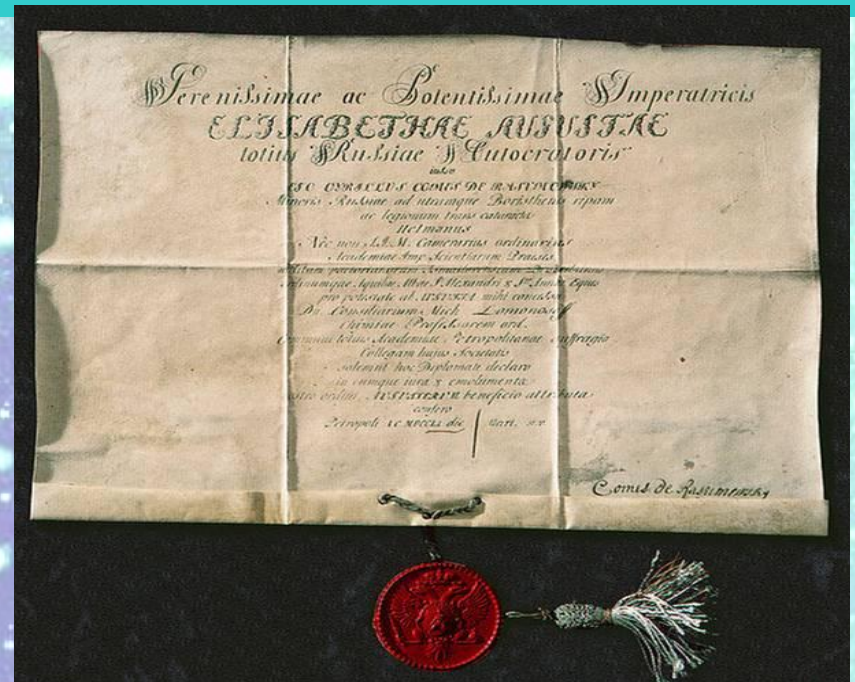 Serenissimae ac Potentissimae Imperatricis
ELISABETHAE AUGUSTAE
totius Russiae Autocratoris
iussu
EGO CYRILLUS COMES DE RASUMOWSKY
Minoris Russiae ad utramque Boristhenis ripam
ac legionum trans catarractas
Hetmanus
Nec non S.I.M. Camerarius ordinarius
Academiae Imp. Scientiarum Praeses
Ordinumque Aquilae Albae S. Alexandri & S. Annae Eques
pro potestate ab AUGUSTA mihi concessa
Dn. Consiliarium Mich Lomonosoff
Chimiae Professorem ord.
communi totius Academiae Petropolitanae suffragio
Collegam hujus Societatis
solemni hoc Diplomate declaro
in eumque iura & emolumenta
ordini AUGUSTAE beneficio attributa
confero
Petropoli
Comes de Rasumowsky